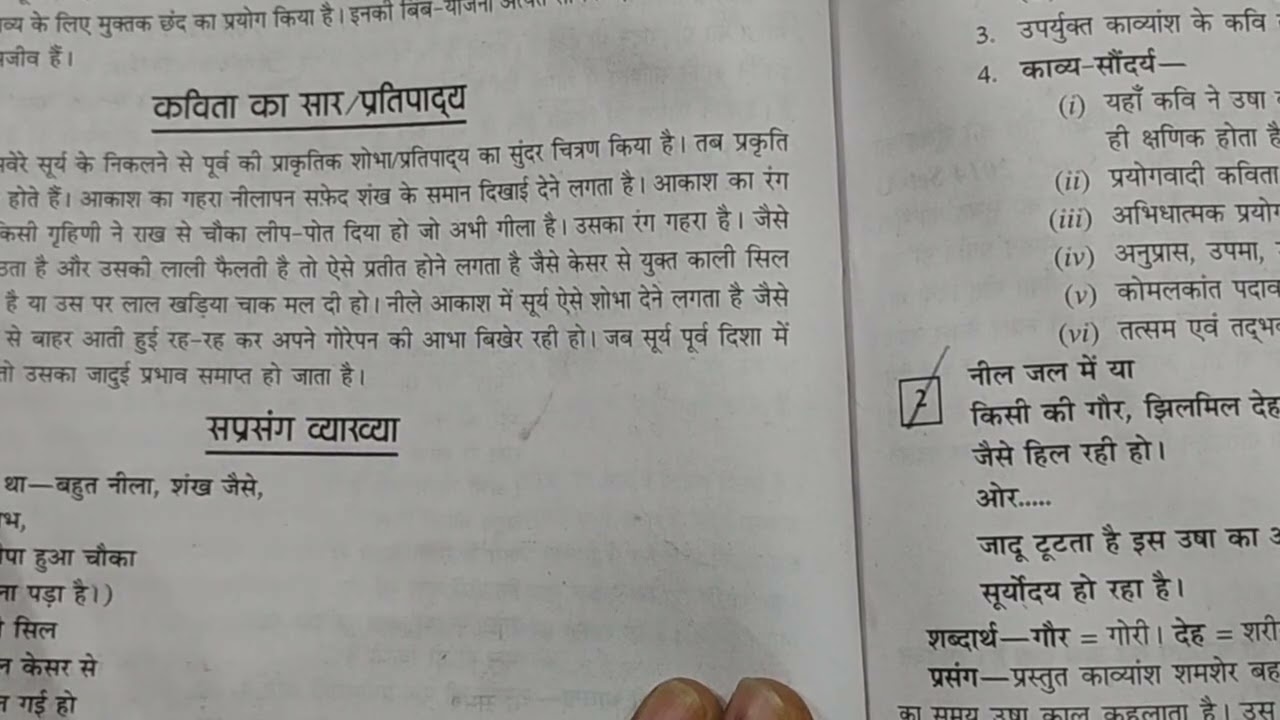 व्य के लिए मुक्तक छंद का प्रयोग किया है। इनकी बिंब-योजना
जीव हैं।
कविता का सार/प्रतिपाद्य
सवेरे सूर्य के निकलने से पूर्व की प्राकृतिक शोभा/प्रतिपाद्य का सुंदर चित्रण किया है। तब प्रकृति
होते हैं। आकाश का गहरा नीलापन सफेद शंख के समान दिखाई देने लगता है। आकाश का रंग
किसी गृहिणी ने राख से चौका लीप-पोत दिया हो जो अभी गीला है। उसका रंग गहरा है। जैसे
ठता है और उसकी लाली फैलती है तो ऐसे प्रतीत होने लगता है जैसे केसर से युक्त काली सिल
है या उस पर लाल खड़िया चाक मल दी हो। नीले आकाश में सूर्य ऐसे शोभा देने लगता है जैसे
से बाहर आती हुई रह-रह कर अपने गोरेपन की आभा बिखेर रही हो। जब सूर्य पूर्व दिशा में
तो उसका जादुई प्रभाव समाप्त हो जाता है।
सप्रसंग व्याख्या
था—बहुत नीला, शंख जैसे,
भ,
पा हुआ चौका
ना पड़ा है।)
सिल
केसर से
गई हो
3. उपर्युक्त काव्यांश के कवि
4. काव्य-सौंदर्य—
(i) यहाँ कवि ने उषा
ही क्षणिक होता है
(ii) प्रयोगवादी कविता
(iii) अभिधात्मक प्रयोग
(iv) अनुप्रास, उपमा,
(v) कोमलकांत पदाव
(vi) तत्सम एवं तद्भव
2 नील जल में या
किसी की गौर, झिलमिल देह
जैसे हिल रही हो।
ओर.....
जादू टूटता है इस उषा का अ
सूर्योदय हो रहा है।
शब्दार्थ—गौर = गोरी। देह = शरी
प्रसंग—प्रस्तुत काव्यांश शमशेर बह
का समय उषा काल कहलाता है। उस